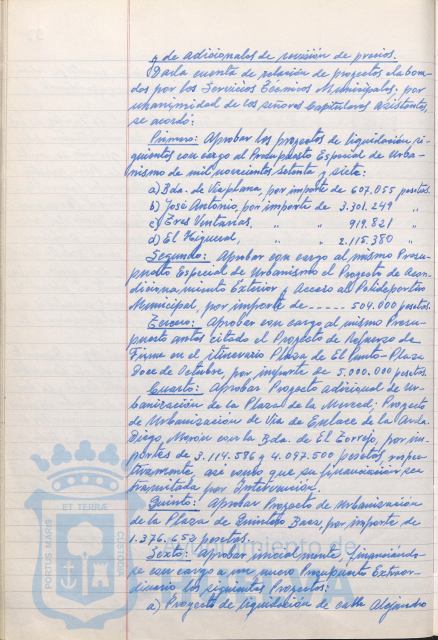 y de adicionales de revisión de precios.
Dada cuenta de relación de proyectos elabora-
dos por los Servicios Técnicos Municipales, por
unanimidad de los señores Capitulares asistentes,
se acordó:
Primero: Aprobar los proyectos de liquidación si-
guientes con cargo al Presupuesto Especial de Urba-
nismo de mil novecientos setenta y siete:
a) Bda. de Viaplana, por importe de 607.055 pesetas.
b) José Antonio, por importe de 3.301.249 "
c) Tres Ventanas, " " 919.821 "
d) El Higueral, " " 2.115.380 "
Segundo: Aprobar con cargo al mismo Presu-
puesto Especial de Urbanismo el Proyecto de Acon-
dicionamiento Exterior y Acceso al Polideportivo
Municipal, por importe de ----- 504.000 pesetas.
Tercero: Aprobar con cargo al mismo Presu-
puesto antes citado el Proyecto de Refuerzo de
Firme en el itinerario Plaza de El Punto-Plaza
Doce de Octubre, por importe de 5.000.000 pesetas.
Cuarto: Aprobar Proyecto adicional de Ur-
banización de la Plaza de la Merced; Proyecto
de Urbanización de Vía de Enlace de la Avda.
Diego Morón con la Bda. de El Torrejo, por im-
portes de 3.114.586 y 4.097.500 pesetas respec-
tivamente, así como que su financiación sea
tramitada por Intervención.
Quinto: Aprobar Proyecto de Urbanización
de la Plaza de Quintero Baez, por importe de
1.376.653 pesetas.
Sexto: Aprobar inicialmente, financiándo-
se con cargo a un nuevo Presupuesto Extraor-
dinario los siguientes Proyectos:
a) Proyecto de liquidación de calle Alejandro
PORTUS MARIS
ET TERRÆ
CUSTODIA
Ayuntamiento de
HUELVA